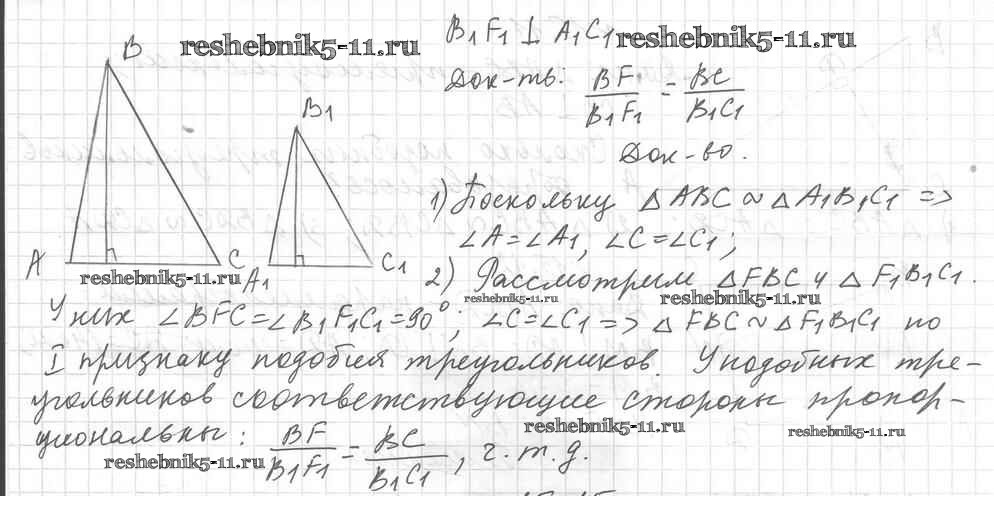 B
reshebnik5-11.ru
B₁F₁ ⊥ A₁C₁
reshebnik5-11.ru
Док-ть: BF/B₁F₁ = BC/B₁C₁
B₁
Док-во.
1) Поскольку △ABC ~ △A₁B₁C₁ =>
∠A=∠A₁, ∠C=∠C₁;
A
C
A₁
C₁
reshebnik5-11.ru
2) Рассмотрим △FBC и △F₁B₁C₁.
reshebnik5-11.ru
reshebnik5-11.ru
У них ∠BFC=∠B₁F₁C₁=90°; ∠C=∠C₁ => △FBC ~ △F₁B₁C₁ по
I признаку подобия треугольников. У подобных тре-
угольников соответствующие стороны пропор-
циональны: BF/B₁F₁ = BC/B₁C₁, ч.т.д.
reshebnik5-11.ru
reshebnik5-11.ru
reshebnik5-11.ru